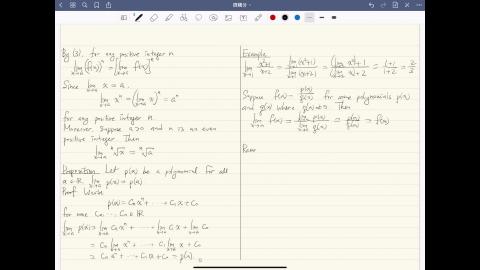 微積分
By (3), for any positive integer n
lim x→a (f(x))^n = [lim x→a f(x)]^n
Since lim x→a x = a,
lim x→a x^n = (lim x→a x)^n = a^n
for any positive integer n.
Moreover, suppose a>0 and n is an even
positive integer. Then
lim x→a ⁿ√x = ⁿ√a
Proposition Let p(x) be a polynomial. For all
a∈ℝ lim x→a p(x) = p(a).
Proof. Write
p(x) = Cₙxⁿ + ⋯ + C₁x + C₀
for some C₀, ⋯ Cₙ ∈ ℝ
lim x→a p(x) = lim x→a Cₙxⁿ + ⋯ + lim x→a C₁x + lim x→a C₀
= Cₙ lim x→a xⁿ + ⋯ + C₁ lim x→a x + C₀
= Cₙaⁿ + ⋯ + C₁a + C₀ = p(a). □
Example
lim x→1 (x²+1)/(x+2) = lim x→1 (x²+1) / lim x→1 (x+2) = ((lim x→1 x)²+1) / (lim x→1 x + 2) = (1+1)/(1+2) = 2/3
Suppose f(x) = p(x)/q(x) for some polynomials p(x)
and q(x) where q(a)≠0. Then
lim x→a f(x) = lim x→a p(x) / lim x→a q(x) = p(a)/q(a) = f(a)
Rem